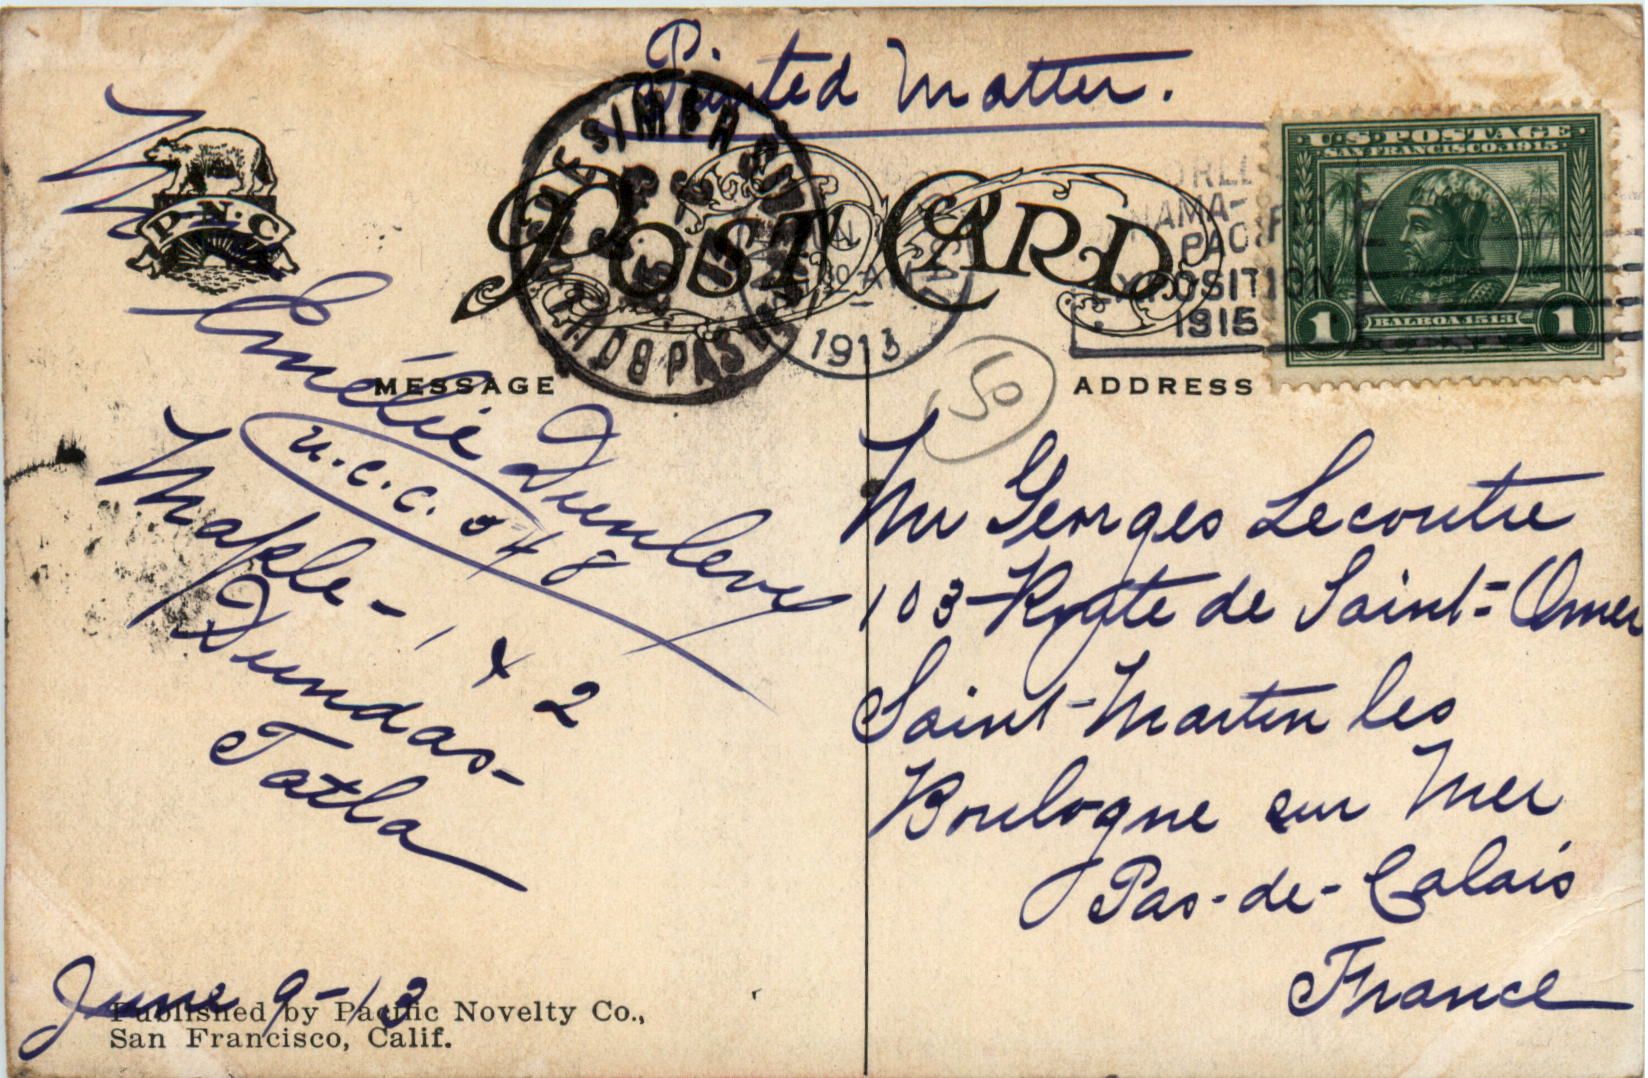 Printed Matter.
U.S. POSTAGE
SAN FRANCISCO, 1915
1 BALBOA 1513 1
CENTS
P.N.C.
POST CARD
PACIFIC
EXPOSITION
1915
1913
50
MESSAGE
ADDRESS
Emélie Dunleve
U.C.C. 048
Maple-
1 & 2
Dundas-
Tatla
June 9-13
Published by Pacific Novelty Co.,
San Francisco, Calif.
Mr Georges Lecoutre
103-Route de Saint-Omer
Saint-Martin les
Boulogne sur Mer
Pas-de-Calais
France